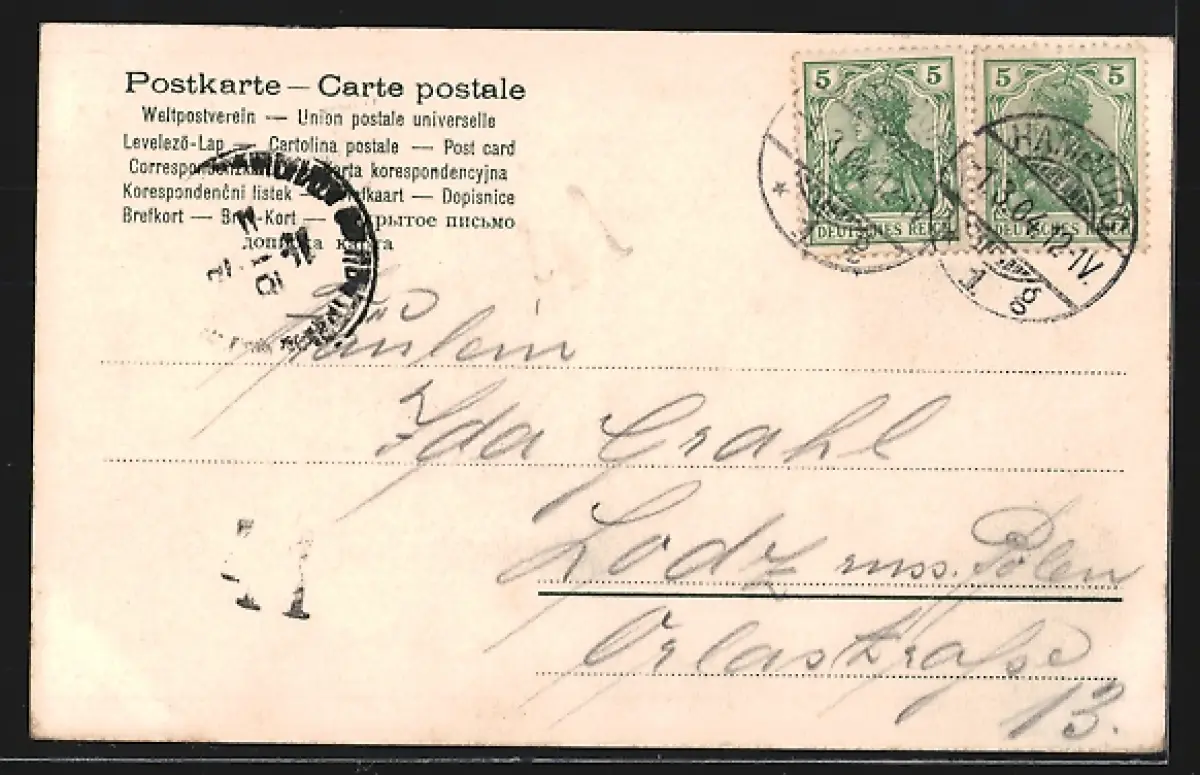 Postkarte — Carte postale
Weltpostverein — Union postale universelle
Levelező-Lap — Cartolina postale — Post card
korespondencyjna
Korespondenční listek — Dopisnice
Brefkort — письмо
карта
5 5
DEUTSCHES REICH
5 5
DEUTSCHES REICH
HAMBURG
1.3.04.12-1V.
1 g
Fräulein
Ida Grahl
Lodz russ. Polen
Orlastraße
13.